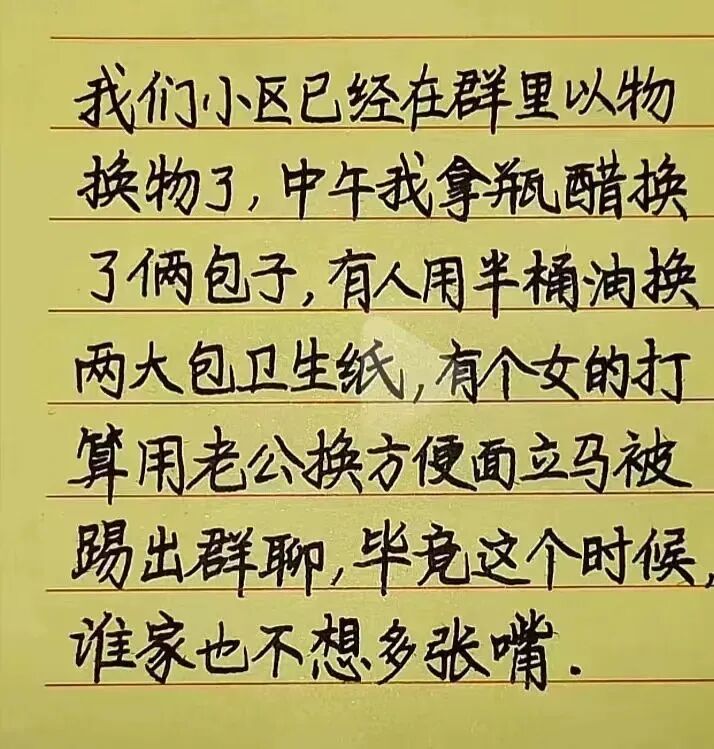 我们小区已经在群里以物
换物了,中午我拿瓶醋换
了俩包子,有人用半桶油换
两大包卫生纸,有个女的打
算用老公换方便面立马被
踢出群聊,毕竟这个时候,
谁家也不想多张嘴.